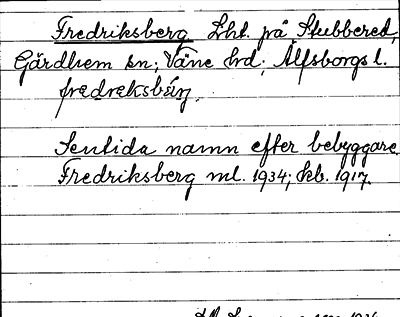 Fredriksberg Lht. på Stubbered,
Gärdhem sn; Väne hd; Älfsborgs l.
fredreksbärj.
Sentida namn efter bebyggare.
Fredriksberg ml. 1934; kb. 1917.